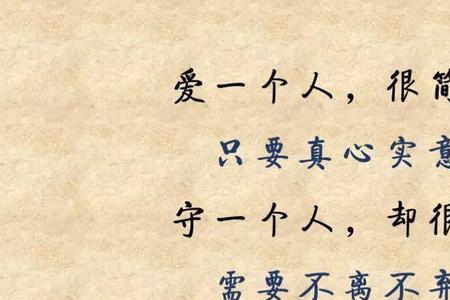 爱一个人，很简
只要真心实意
守一个人，却很
需要不离不弃